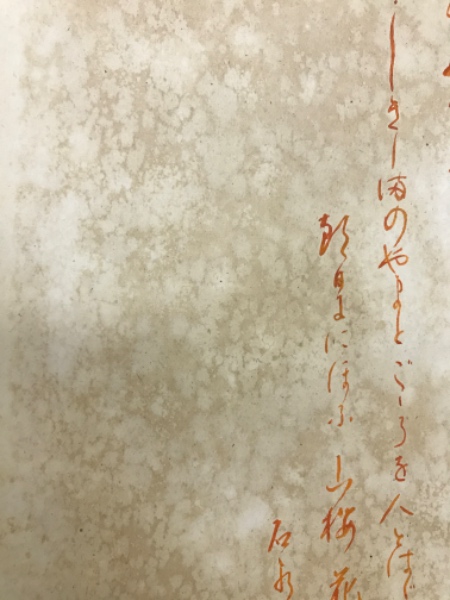 しきしまのやまとごゝろを人とはば
朝日ににほふ山桜花
石